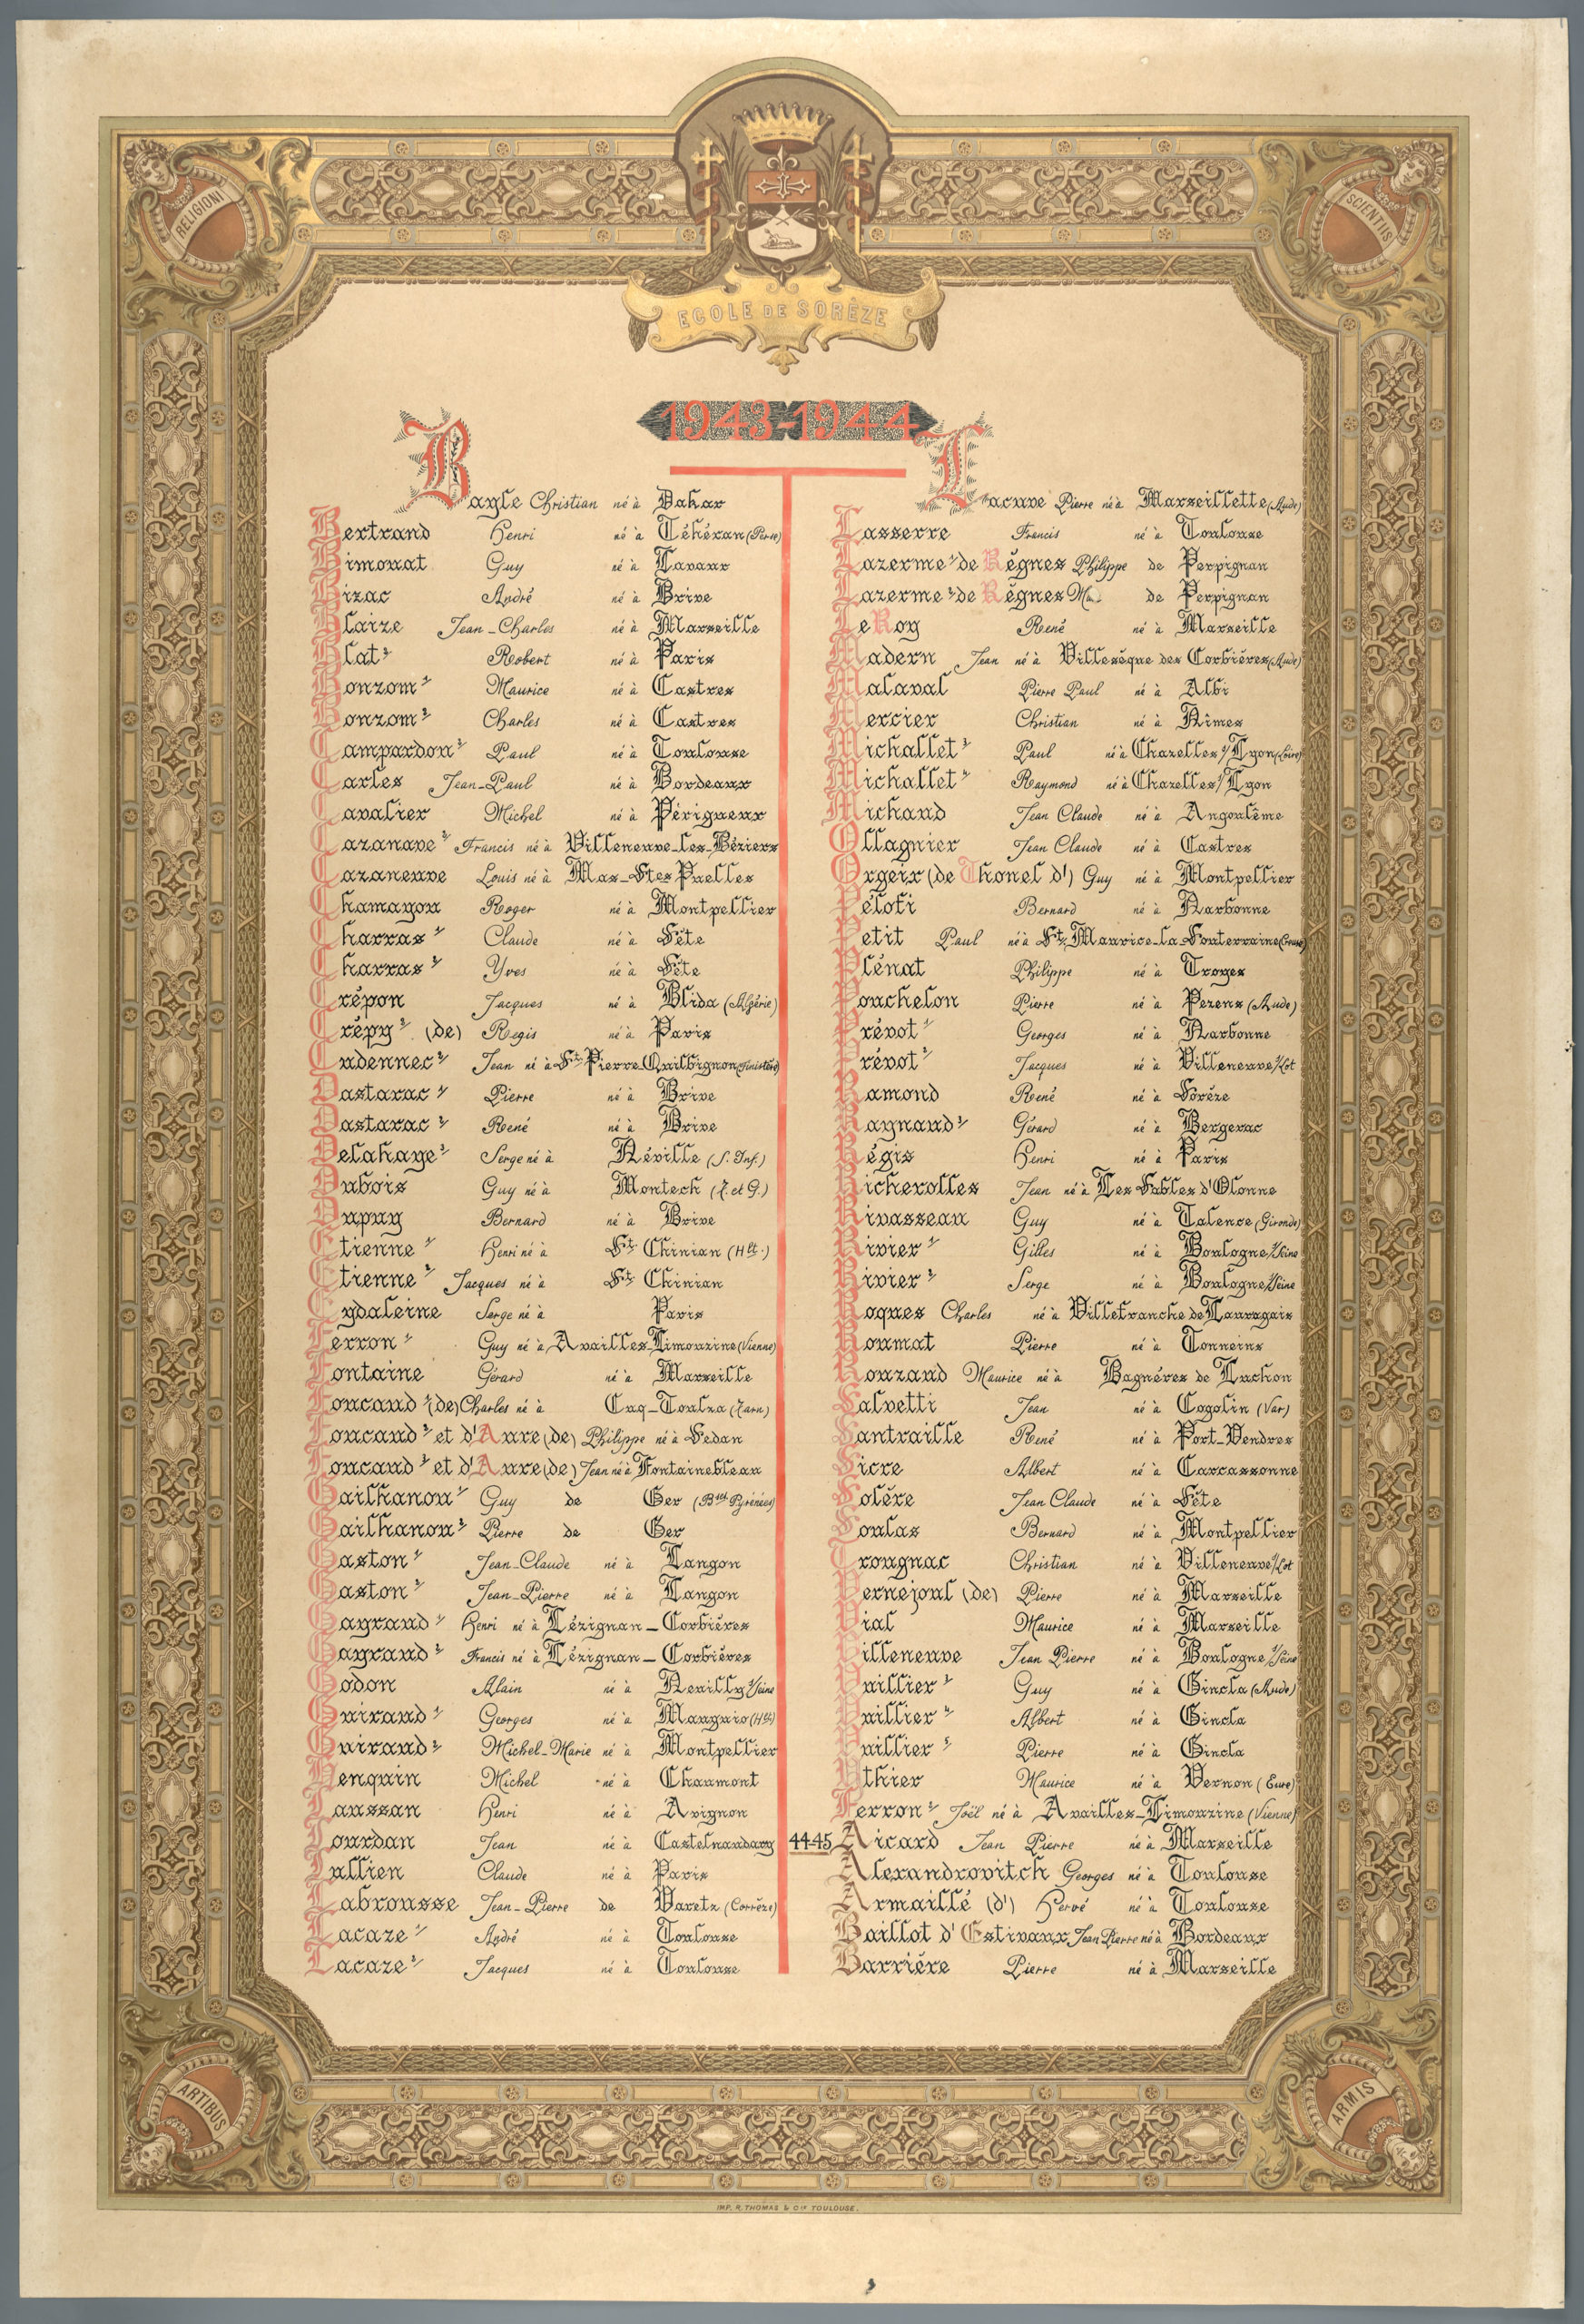 RELIGIONI
SCIENTIIS
ECOLE DE SORÈZE
1943-1944
Bayle Christian né à Dakar
Bertrand Henri né à Téhéran (Perse)
Bimouat Guy né à Lavaur
Bizac André né à Brive
Blaize Jean-Charles né à Marseille
Blat 2/ Robert né à Paris
Bonzom 1/ Maurice né à Castres
Bonzom 2/ Charles né à Castres
Campardon 2/ Paul né à Toulouse
Carles Jean-Paul né à Bordeaux
Cavalier Michel né à Périgueux
Cazanave 2/ Francis né à Villeneuve-les-Béziers
Cazaneuve Louis né à Mas-Stes Puelles
Chamayou Roger né à Montpellier
Charras 1/ Claude né à Sète
Charras 2/ Yves né à Sète
Crépon Jacques né à Blida (Algérie)
Crépy 2/ (de) Regis né à Paris
Cudennec 2/ Jean né à St Pierre-Quilbignon (Finistère)
Dastarac 1/ Pierre né à Brive
Dastarac 2/ René né à Brive
Delahaye 2/ Serge né à Néville (S. Inf.)
Dubois Guy né à Montech (T. et G.)
Dupuy Bernard né à Brive
Etienne 1/ Henri né à St Chinian (Hlt.)
Etienne 2/ Jacques né à St Chinian
Eydaleine Serge né à Paris
Ferron 1/ Guy né à Availles-Limouzine (Vienne)
Fontaine Gérard né à Marseille
Foucaud 1/ (de) Charles né à Cuq-Toulza (Tarn)
Foucaud 2/ et d'Aure (de) Philippe né à Sedan
Foucaud 3/ et d'Aure (de) Jean né à Fontainebleau
Gailhanou 1/ Guy de Ger (Bses Pyrénées)
Gailhanou 2/ Pierre de Ger
Gaston 1/ Jean-Claude né à Langon
Gaston 2/ Jean-Pierre né à Langon
Gayraud 1/ Henri né à Lézignan-Corbières
Gayraud 2/ Francis né à Lézignan-Corbières
Godon Alain né à Neuilly s/Seine
Guiraud 1/ Georges né à Mauguio (Hlt)
Guiraud 2/ Michel-Marie né à Montpellier
Henquin Michel né à Chaumont
Jaussan Henri né à Avignon
Jourdan Jean né à Castelnaudary
Jullien Claude né à Paris
Labrousse Jean-Pierre de Varetz (Corrèze)
Lacaze 1/ André né à Toulouse
Lacaze 2/ Jacques né à Toulouse
Lacuve Pierre né à Marseillette (Aude)
Lasserre Francis né à Toulouse
Lazerme 1/ de Règnes Philippe de Perpignan
Lazerme 2/ de Règnes de Perpignan
Le Roy René né à Marseille
Madern Jean né à Villesèque des Corbières (Aude)
Malaval Pierre Paul né à Albi
Mercier Christian né à Nîmes
Michallet 3/ Paul né à Chazelles s/Lyon (Loire)
Michallet 4/ Raymond né à Chazelles s/Lyon
Michaud Jean Claude né à Angoulême
Ollagnier Jean Claude né à Castres
Orgeix (de Thonel d') Guy né à Montpellier
Pélofi Bernard né à Narbonne
Petit Paul né à St Maurice-la-Souterraine (Creuse)
Plénat Philippe né à Troyes
Pouchelon Pierre né à Pezens (Aude)
Prévot 1/ Georges né à Narbonne
Prévot 2/ Jacques né à Villeneuve s/Lot
Ramond René né à Sorèze
Raynaud 2/ Gérard né à Bergerac
Régis Henri né à Paris
Richerolles Jean né à Les Sables d'Olonne
Rivasseau Guy né à Talence (Gironde)
Rivier 1/ Gilles né à Boulogne s/Seine
Rivier 2/ Serge né à Boulogne s/Seine
Roques Charles né à Villefranche de Lauragais
Roumat Pierre né à Tonneins
Rouzaud Maurice né à Bagnères de Luchon
Salvetti Jean né à Cogolin (Var)
Santraille René né à Port-Vendres
Sicre Albert né à Carcassonne
Solère Jean Claude né à Sète
Soulas Bernard né à Montpellier
Trougnac Christian né à Villeneuve s/Lot
Vernejoul (de) Pierre né à Marseille
Vial Maurice né à Marseille
Villeneuve Jean Pierre né à Boulogne s/Seine
Vuillier 3/ Guy né à Gincla (Aude)
Vuillier 4/ Albert né à Gincla
Vuillier 5/ Pierre né à Gincla
Uthier Maurice né à Vernon (Eure)
Ferron 2/ Joël né à Availles-Limouzine (Vienne)
44-45 Aicard Jean Pierre né à Marseille
Alexandrovitch Georges né à Toulouse
Armaillé (d') Hervé né à Toulouse
Baillot d'Estivaux Jean Pierre né à Bordeaux
Barrière Pierre né à Marseille
ARTIBUS
ARMIS
IMP. R. THOMAS & Cie TOULOUSE.